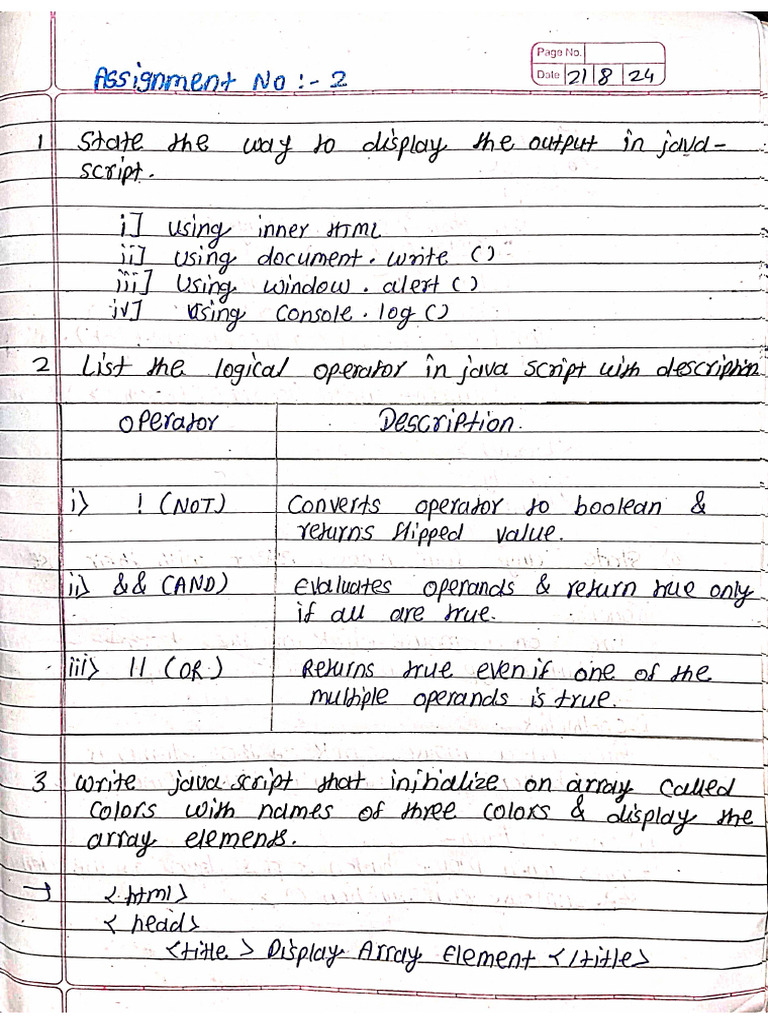 Page No.
Date 21 8 24
Assignment No :- 2
1 State the way to display the output in java-
script.
i] Using inner HTML
ii] Using document.write ()
iii] Using window.alert ()
iv] Using console.log ()
2 List the logical operator in java script with description
Operator Description.
i> ! (NOT) Converts operator to boolean &
returns flipped value.
ii> && (AND) Evaluates operands & return true only
if all are true.
iii> || (OR) Returns true even if one of the
multiple operands is true.
3 Write java script that initialize on array called
colors with names of three colors & display the
array elements.
→ <html>
<head>
<title> Display Array Element </title>